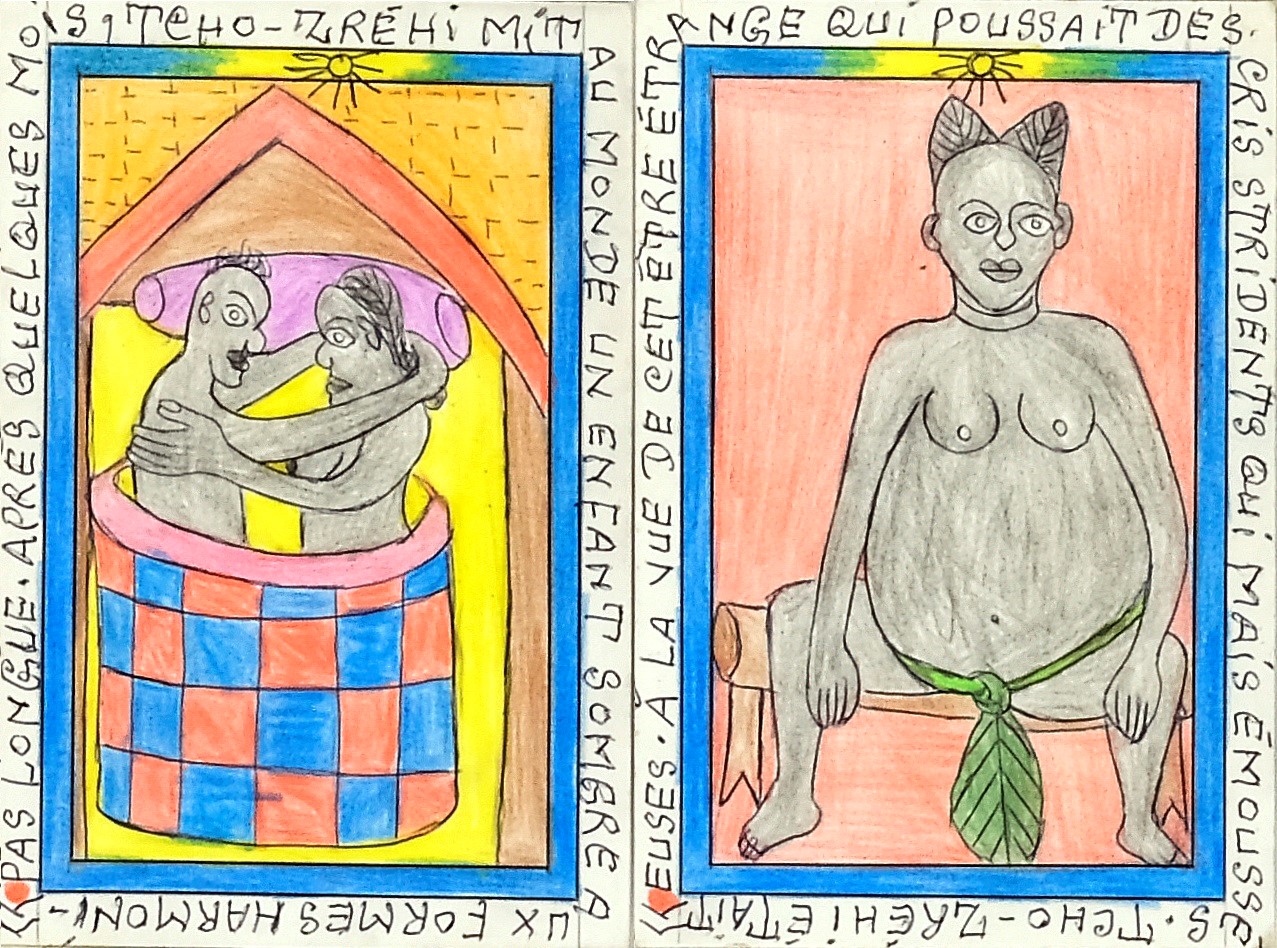 « PAS LONGUE. APRÈS QUELQUES MO
IS, TCHO-ZRÉHI MIT
AU MONDE UN ENFANT SOMBRE A
UX FORMES HARMONI-
« EUSES. À LA VUE DE CET ÊTRE ÉTR
ANGE QUI POUSSAIT DES
CRIS STRIDENTS QUI MAIS ÉMOUSSÉ
S. TCHO-ZRÉHI ÉTAIT